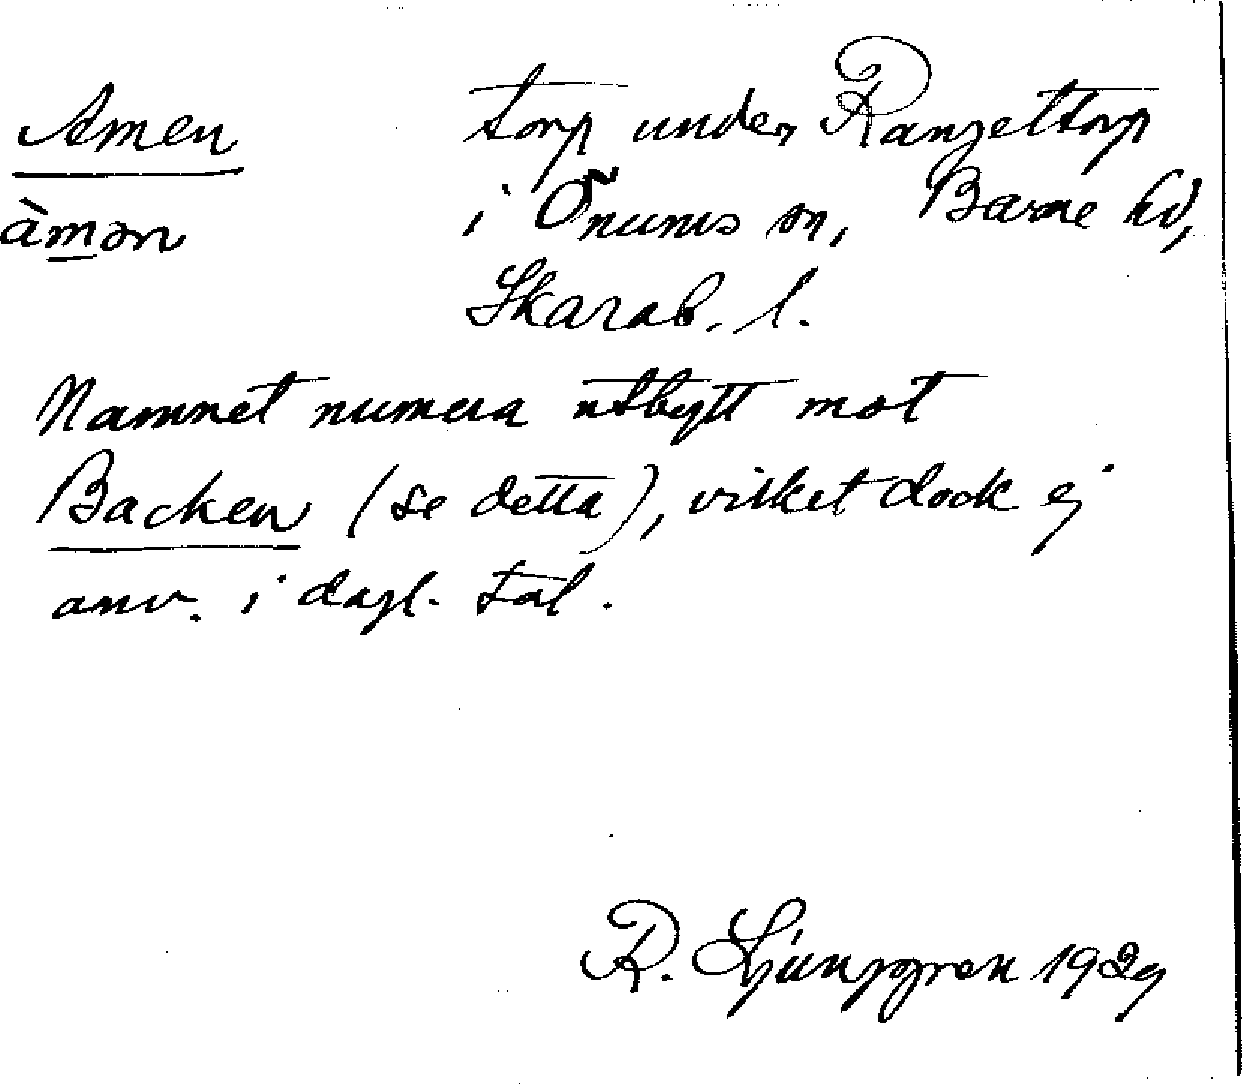 Amen torp under Rangeltorp
àmən i Önums sn, Barne hd,
Skarab. l.
Namnet numera utbytt mot
Backen (se detta), vilket dock ej
anv. i dagl. tal.
R. Ljunggren 1929